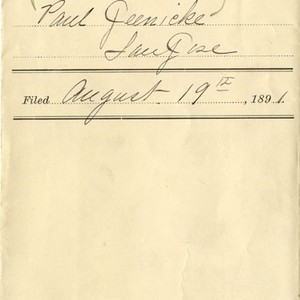 (Paul Jeenicke)
San Jose
Filed August 19th, 1891.